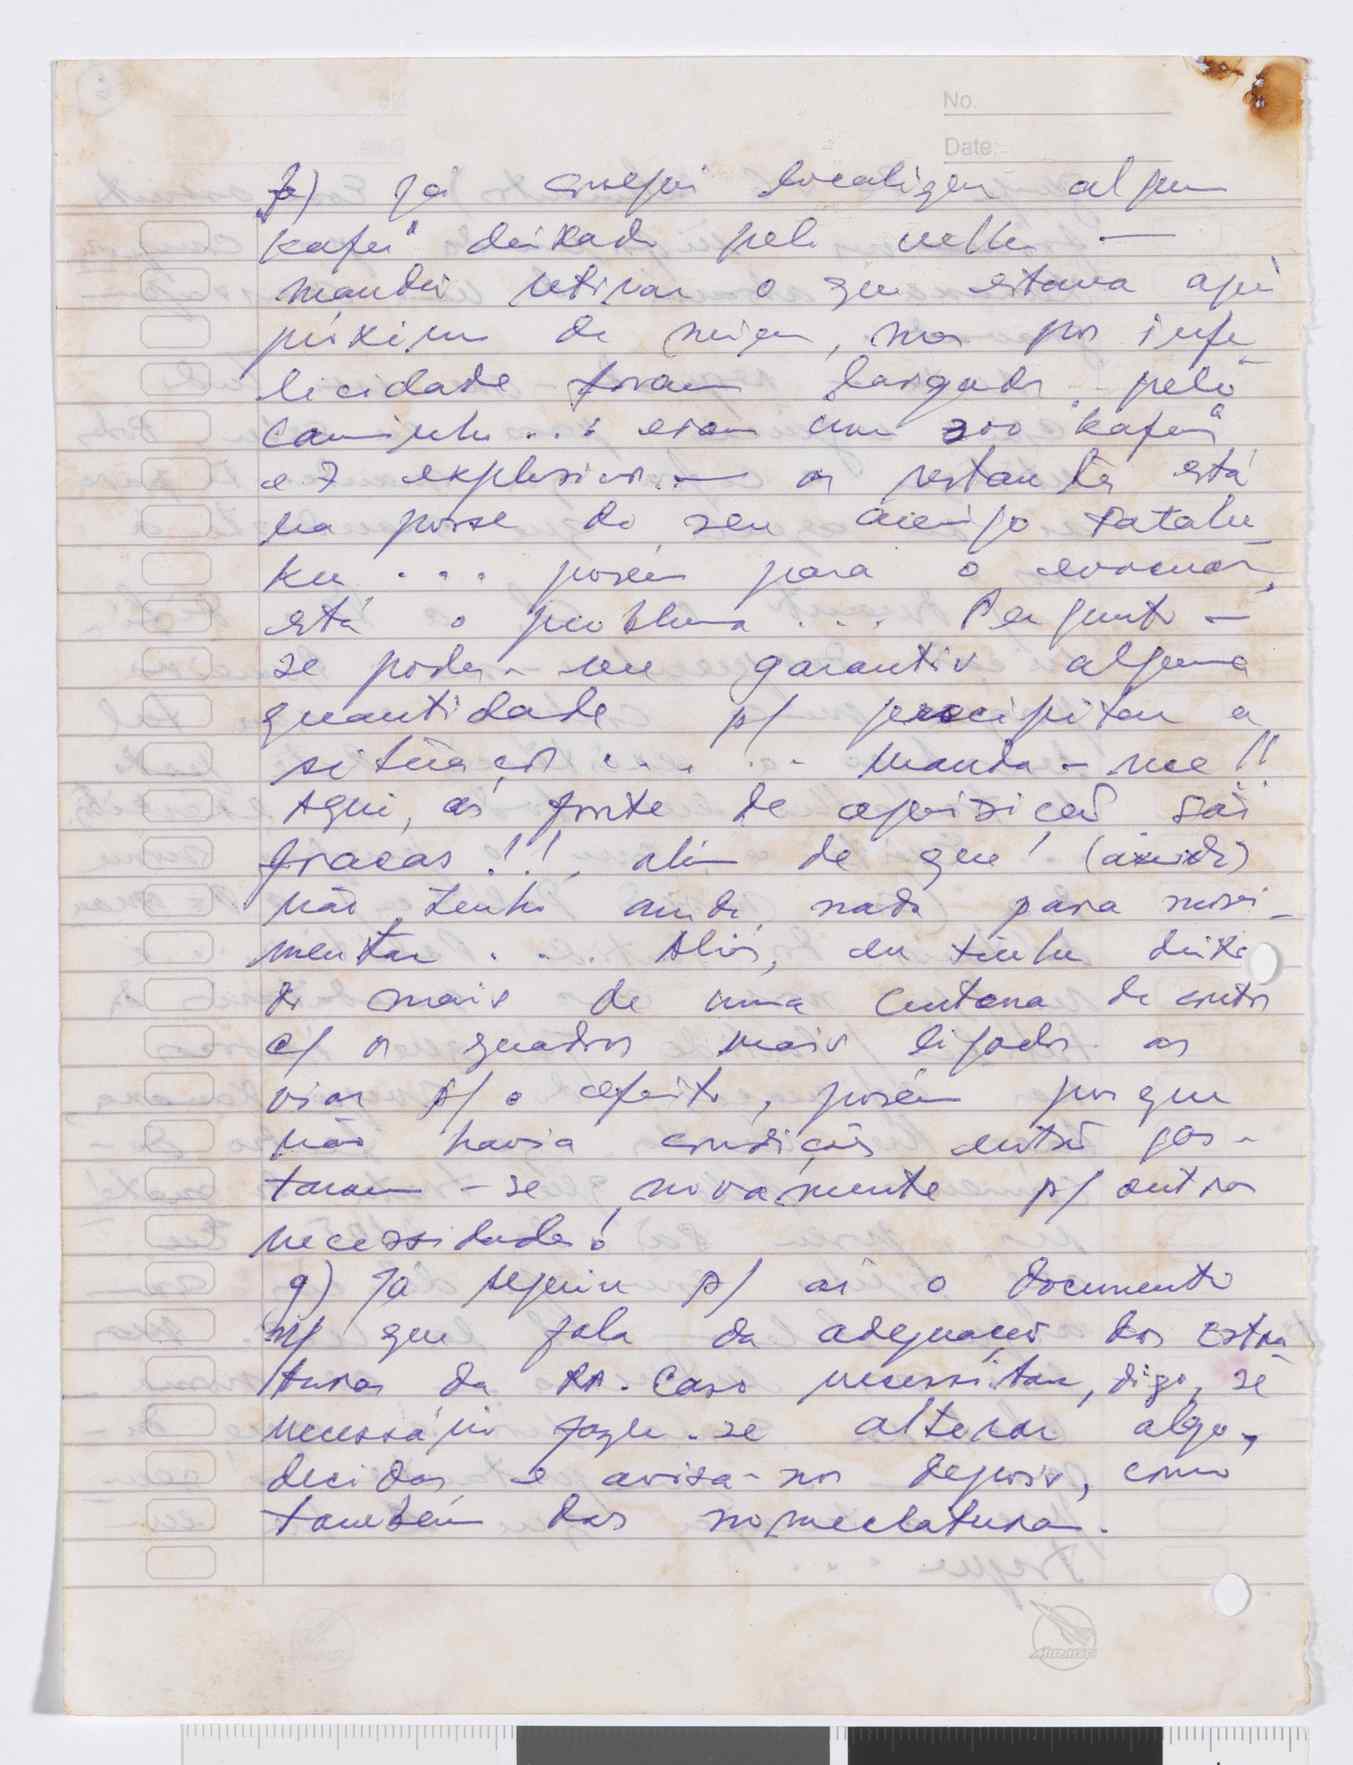 No.
Date:
f) Já consegui localizar algum
"kafeʺ deixado pelo velho —
mandei retirar o que estava aqui
próximo de mim, mas por infe-
licidade foram largados pelo
caminho ... eram uns 200 "kafeʺ
e 7 explosivos. — os restantes está
na posse do seu amigo Fatalu-
ku ... porém para o evacuar,
está o problema ... Pergunto —
se poder-me garantir alguma
quantidade p/ precipitar a
situação ..... manda-me!!
Aqui, as fonte de aquisição são
fracas!!!, além de que! (ainda)
não tenho ainda nada para movi-
mentar ... Aliás, eu tinha deixa-
do mais de uma centena de contos
c/ os quadros mais ligados as
vias p/ o efeito, porém porque
não havia condições então gas-
taram-se novamente p/ outras
necessidades!
g) Já seguiu p/ aí o documento
em que fala da adequação das estru-
turas da RA. Caso necessitar, digo, se
necessário fazer-se alterar algo,
decidas e avisa-nos depois, como
também das nomeclaturas.